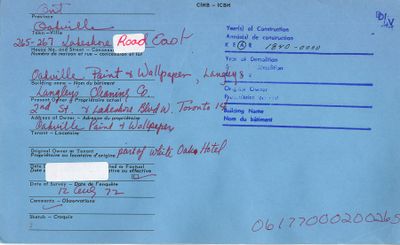 CIHB - ICBH
Ont
Province
Oakville
Town - Ville
265-267 Lakeshore Road East
House No. and Street
Oakville Paint & Wallpaper, Langley's
Building name - Nom du bâtiment
Langleys Cleaning Co.
Present Owner - Propriétaire actuel
2nd St. & Lakeshore Blvd W. Toronto 14
Address of Owner - Adresse du propriétaire
Oakville Paint & Wallpaper
Tenant - Locataire
part of White Oaks Hotel
Original Owner or Tenant
Propriétaire ou locataire d'origine
Date of Survey - Date de l'enquête
12 Aug 72
Comments - Observations
Sketch - Croquis
Year(s) of Construction
Année(s) de construction
K E A B 1840-0000
Year of Demolition
Original Owner
Building Name
Nom du bâtiment
06177000200265